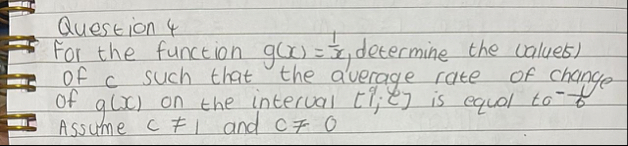 Question 4
For the function g(x) = 1/x, determine the value(s)
of c such that the average rate of change
of g(x) on the interval [1; c] is equal to -1/6
Assume c ≠ 1 and c ≠ 0